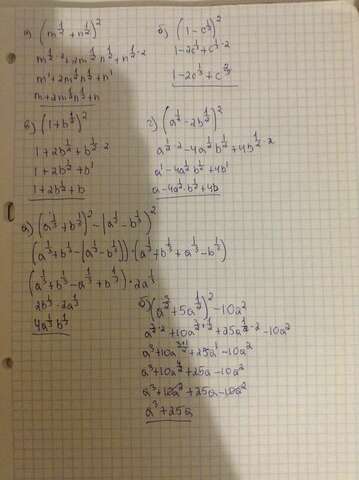 а) (m^{1/2} + n^{1/2})^2
m^{1/2·2} + 2m^{1/2}n^{1/2} + n^{1/2·2}
m^1 + 2m^{1/2}n^{1/2} + n^1
m + 2m^{1/2}n^{1/2} + n
б) (1 - c^{1/3})^2
1 - 2c^{1/3} + c^{1/3·2}
1 - 2c^{1/3} + c^{2/3}
в) (1 + b^{1/2})^2
1 + 2b^{1/2} + b^{1/2·2}
1 + 2b^{1/2} + b^1
1 + 2b^{1/2} + b
г) (a^{1/2} - 2b^{1/2})^2
a^{1/2·2} - 4a^{1/2}b^{1/2} + 4b^{1/2·2}
a^1 - 4a^{1/2}b^{1/2} + 4b^1
a - 4a^{1/2}b^{1/2} + 4b
а) (a^{1/3} + b^{1/3})^2 - (a^{1/3} - b^{1/3})^2
(a^{1/3} + b^{1/3} - (a^{1/3} - b^{1/3})) · (a^{1/3} + b^{1/3} + a^{1/3} - b^{1/3})
(a^{1/3} + b^{1/3} - a^{1/3} + b^{1/3}) · 2a^{1/3}
2b^{1/3} · 2a^{1/3}
4a^{1/3}b^{1/3}
б) (a^{3/2} + 5a^{1/2})^2 - 10a^2
a^{3/2·2} + 10a^{3/2+1/2} + 25a^{1/2·2} - 10a^2
a^3 + 10a^{(3+1)/2} + 25a^1 - 10a^2
a^3 + 10a^{4/2} + 25a - 10a^2
a^3 + 10a^2 + 25a - 10a^2
a^3 + 25a